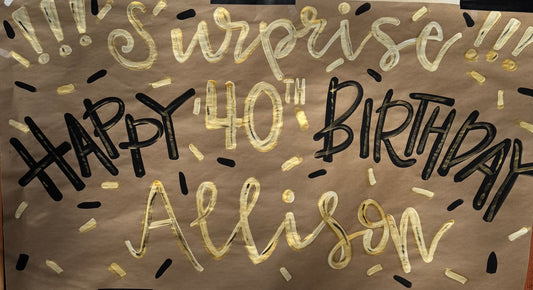 !!! Surprise!!!
HAPPY 40TH BIRTHDAY
Allison